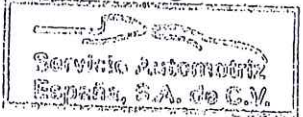 Servicio Automotriz
España, S.A. de C.V.